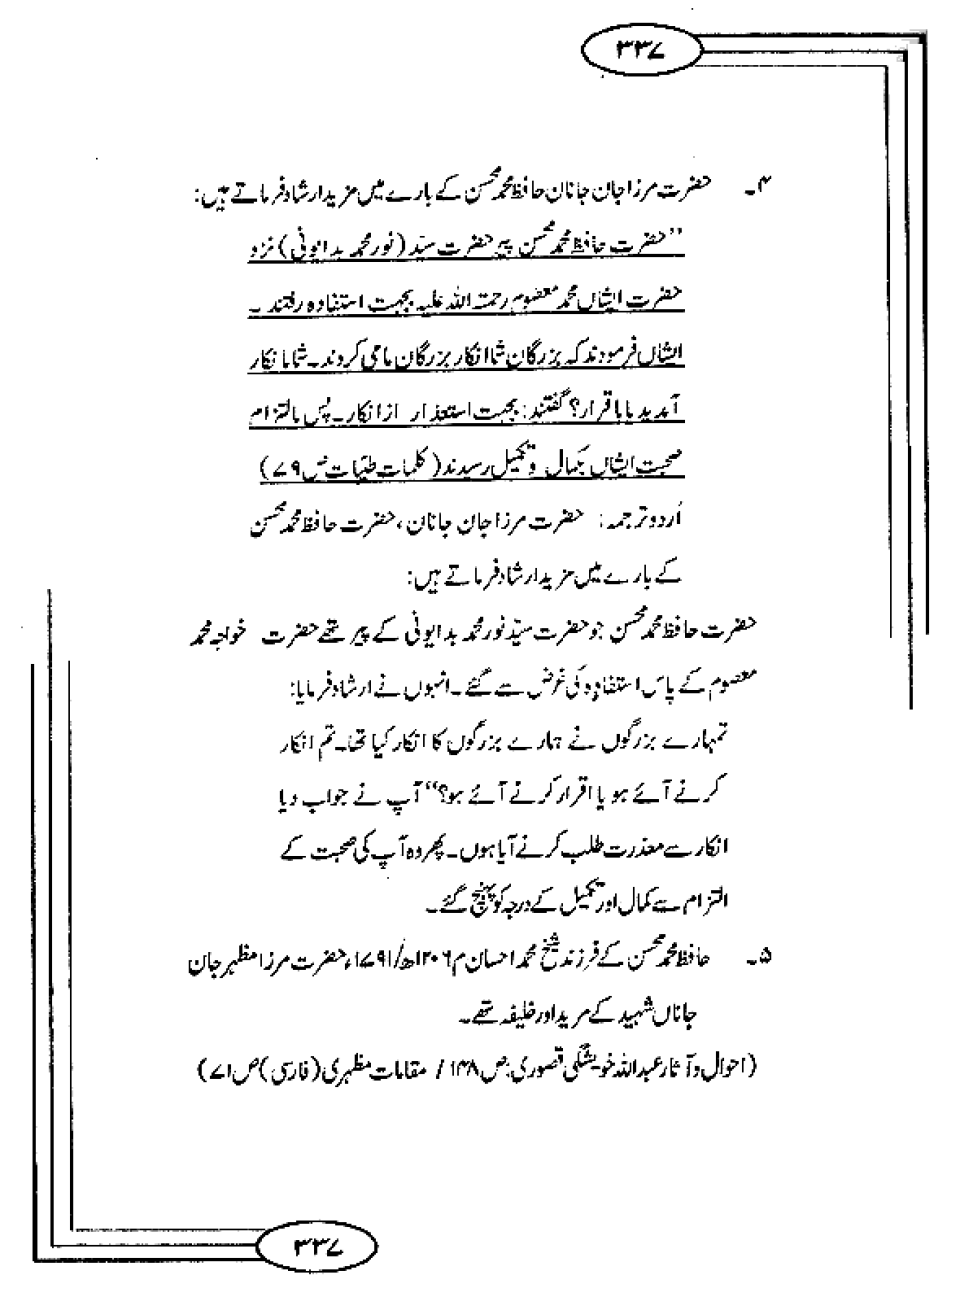 ۳۳۷
۴۔ حضرت مرزا جان جانان حافظ محمد محسن کے بارے میں مزید ارشاد فرماتے ہیں:
"حضرت حافظ محمد محسن پیر حضرت سیّد (نور محمد بدایونی) نزد
حضرت ایشاں محمد معصوم رحمتہ اللہ علیہ بجہت استفادہ رفتند۔
ایشاں فرمودند کہ بزرگان شما انکار بزرگان ما می کردند۔ شما با نکار
آمدید یا با قرار؟ گفتند: بجہت استعذار از انکار۔ پس بالتزام
صحبت ایشاں بکمال و تکمیل رسیدند (کلمات طیّبات ص ۷۹)
اُردو ترجمہ: حضرت مرزا جان جانان، حضرت حافظ محمد محسن
کے بارے میں مزید ارشاد فرماتے ہیں:
حضرت حافظ محمد محسن جو حضرت سیّد نور محمد بدایونی کے پیر تھے حضرت خواجہ محمد
معصوم کے پاس استفادہ کی غرض سے گئے۔ انہوں نے ارشاد فرمایا:
تمہارے بزرگوں نے ہمارے بزرگوں کا انکار کیا تھا۔ تم انکار
کرنے آئے ہو یا اقرار کرنے آئے ہو؟" آپ نے جواب دیا
انکار سے معذرت طلب کرنے آیا ہوں۔ پھر وہ آپ کی صحبت کے
التزام سے کمال اور تکمیل کے درجہ کو پہنچ گئے۔
۵۔ حافظ محمد محسن کے فرزند شیخ محمد احسان م ۱۲۰۶ھ/۱۷۹۱ء حضرت مرزا مظہر جان
جاناں شہید کے مرید اور خلیفہ تھے۔
(احوال و آثار عبداللہ خویشگی قصوری: ص ۱۴۸ / مقامات مظہری (فارسی) ص ۷۱)
۳۳۷